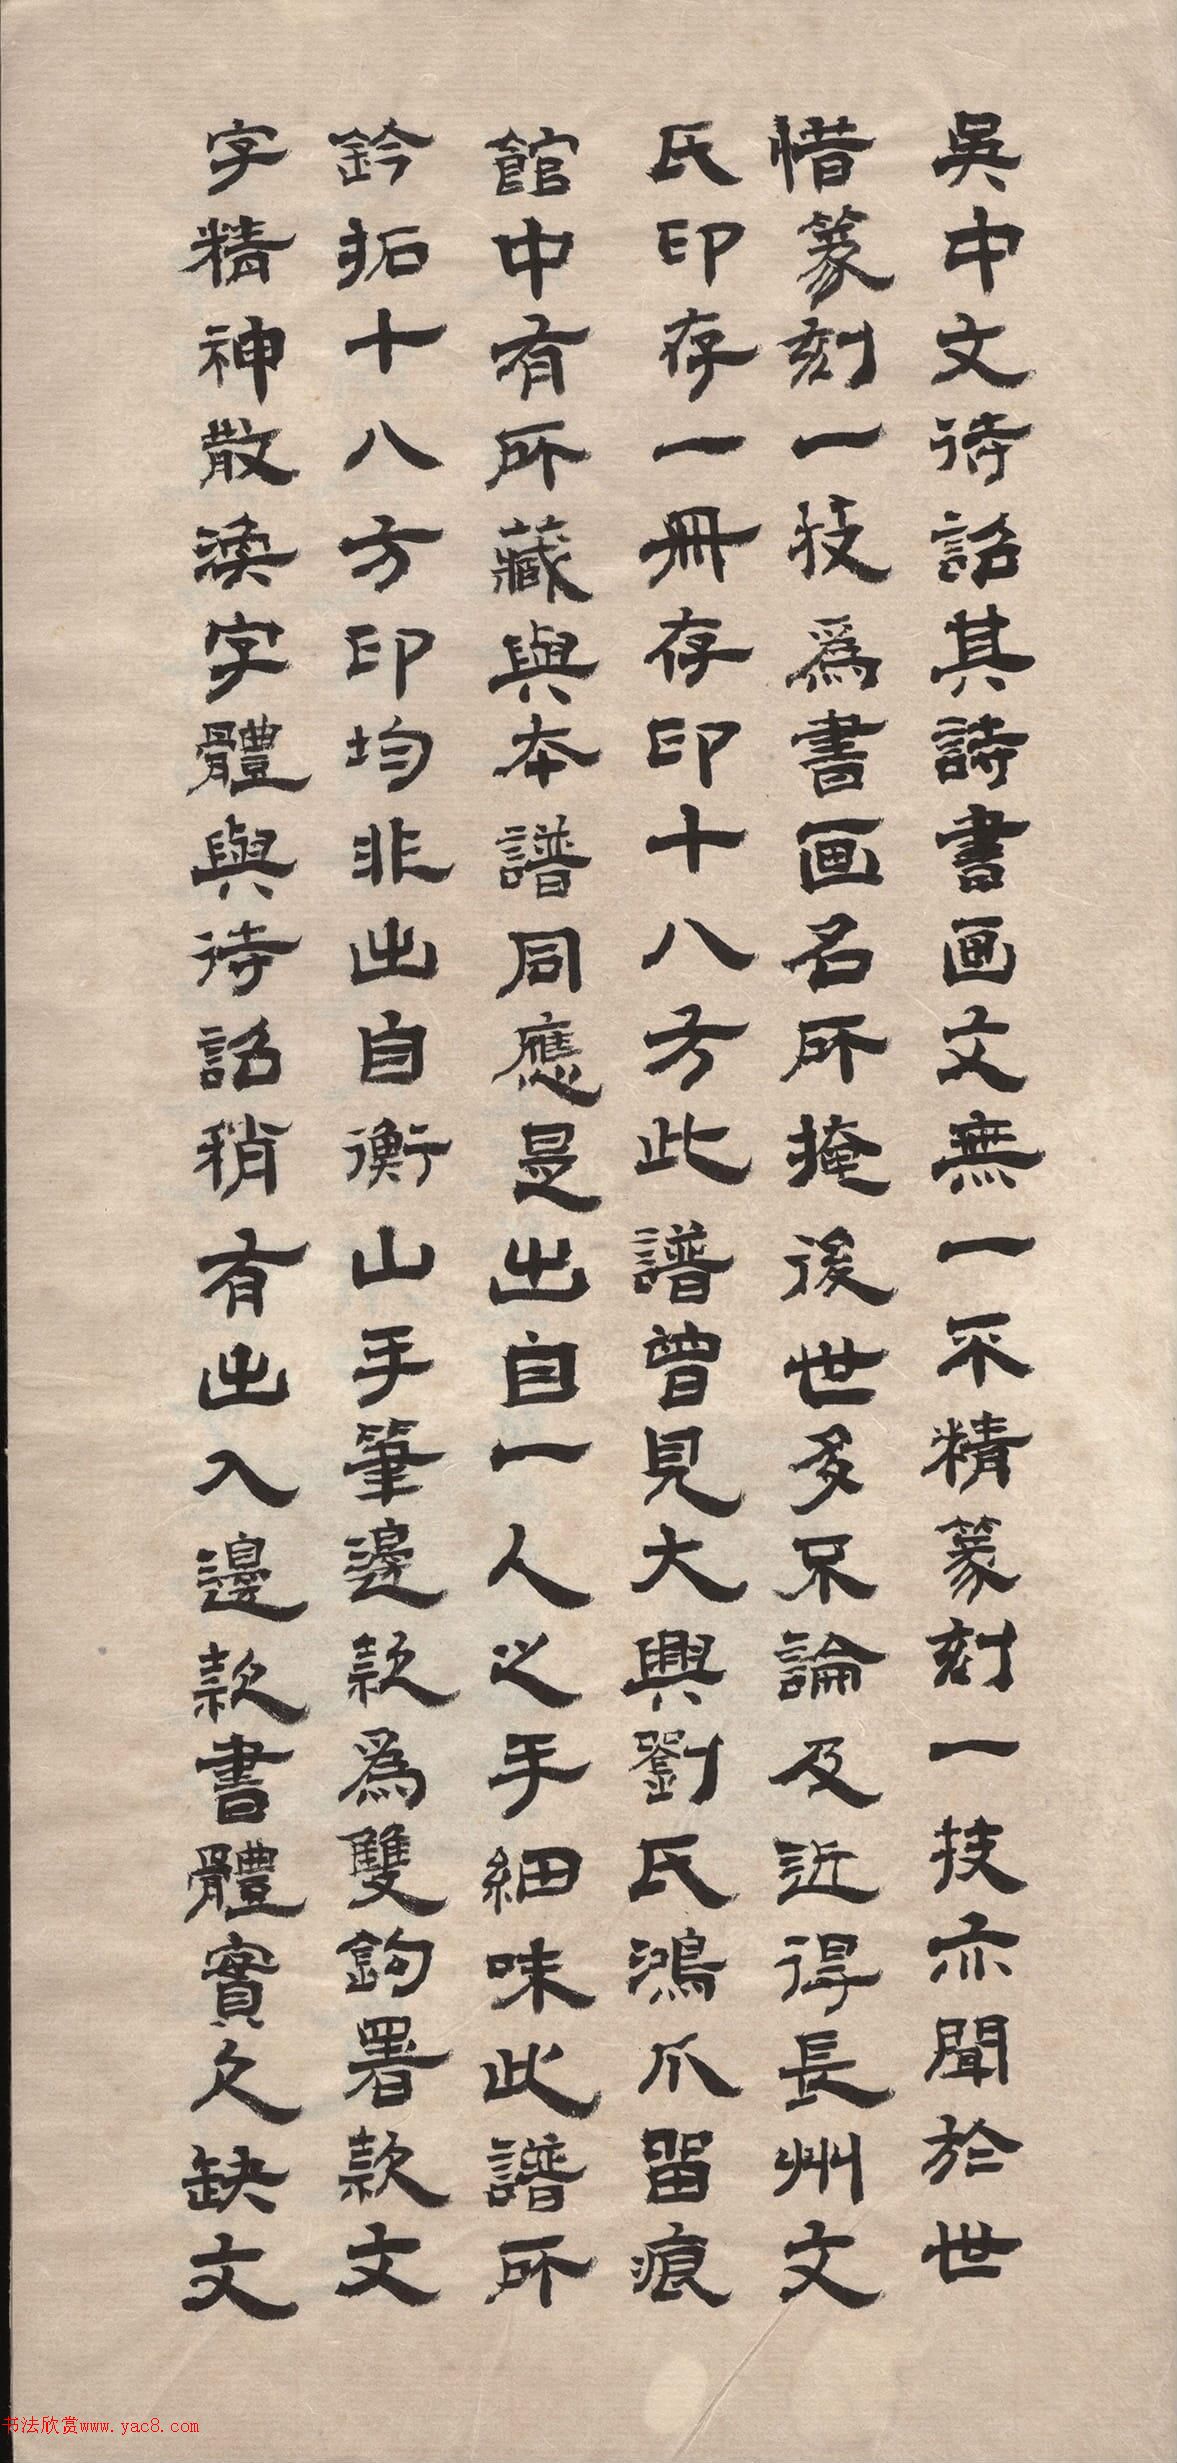 吳中文待詔其詩書画文無一不精篆刻一技亦聞於世
惜篆刻一技爲書画名所掩後世多不論及近得長州文
氏印存一冊存印十八方此譜曾見大興劉氏鴻爪留痕
館中有所藏與本譜同應是出自一人之手細味此譜所
鈐拓十八方印均非出自衡山手筆邊款爲雙鉤署款文
字精神散渙字體與待詔稍有出入邊款書體實久缺文
书法欣赏www.yac8.com